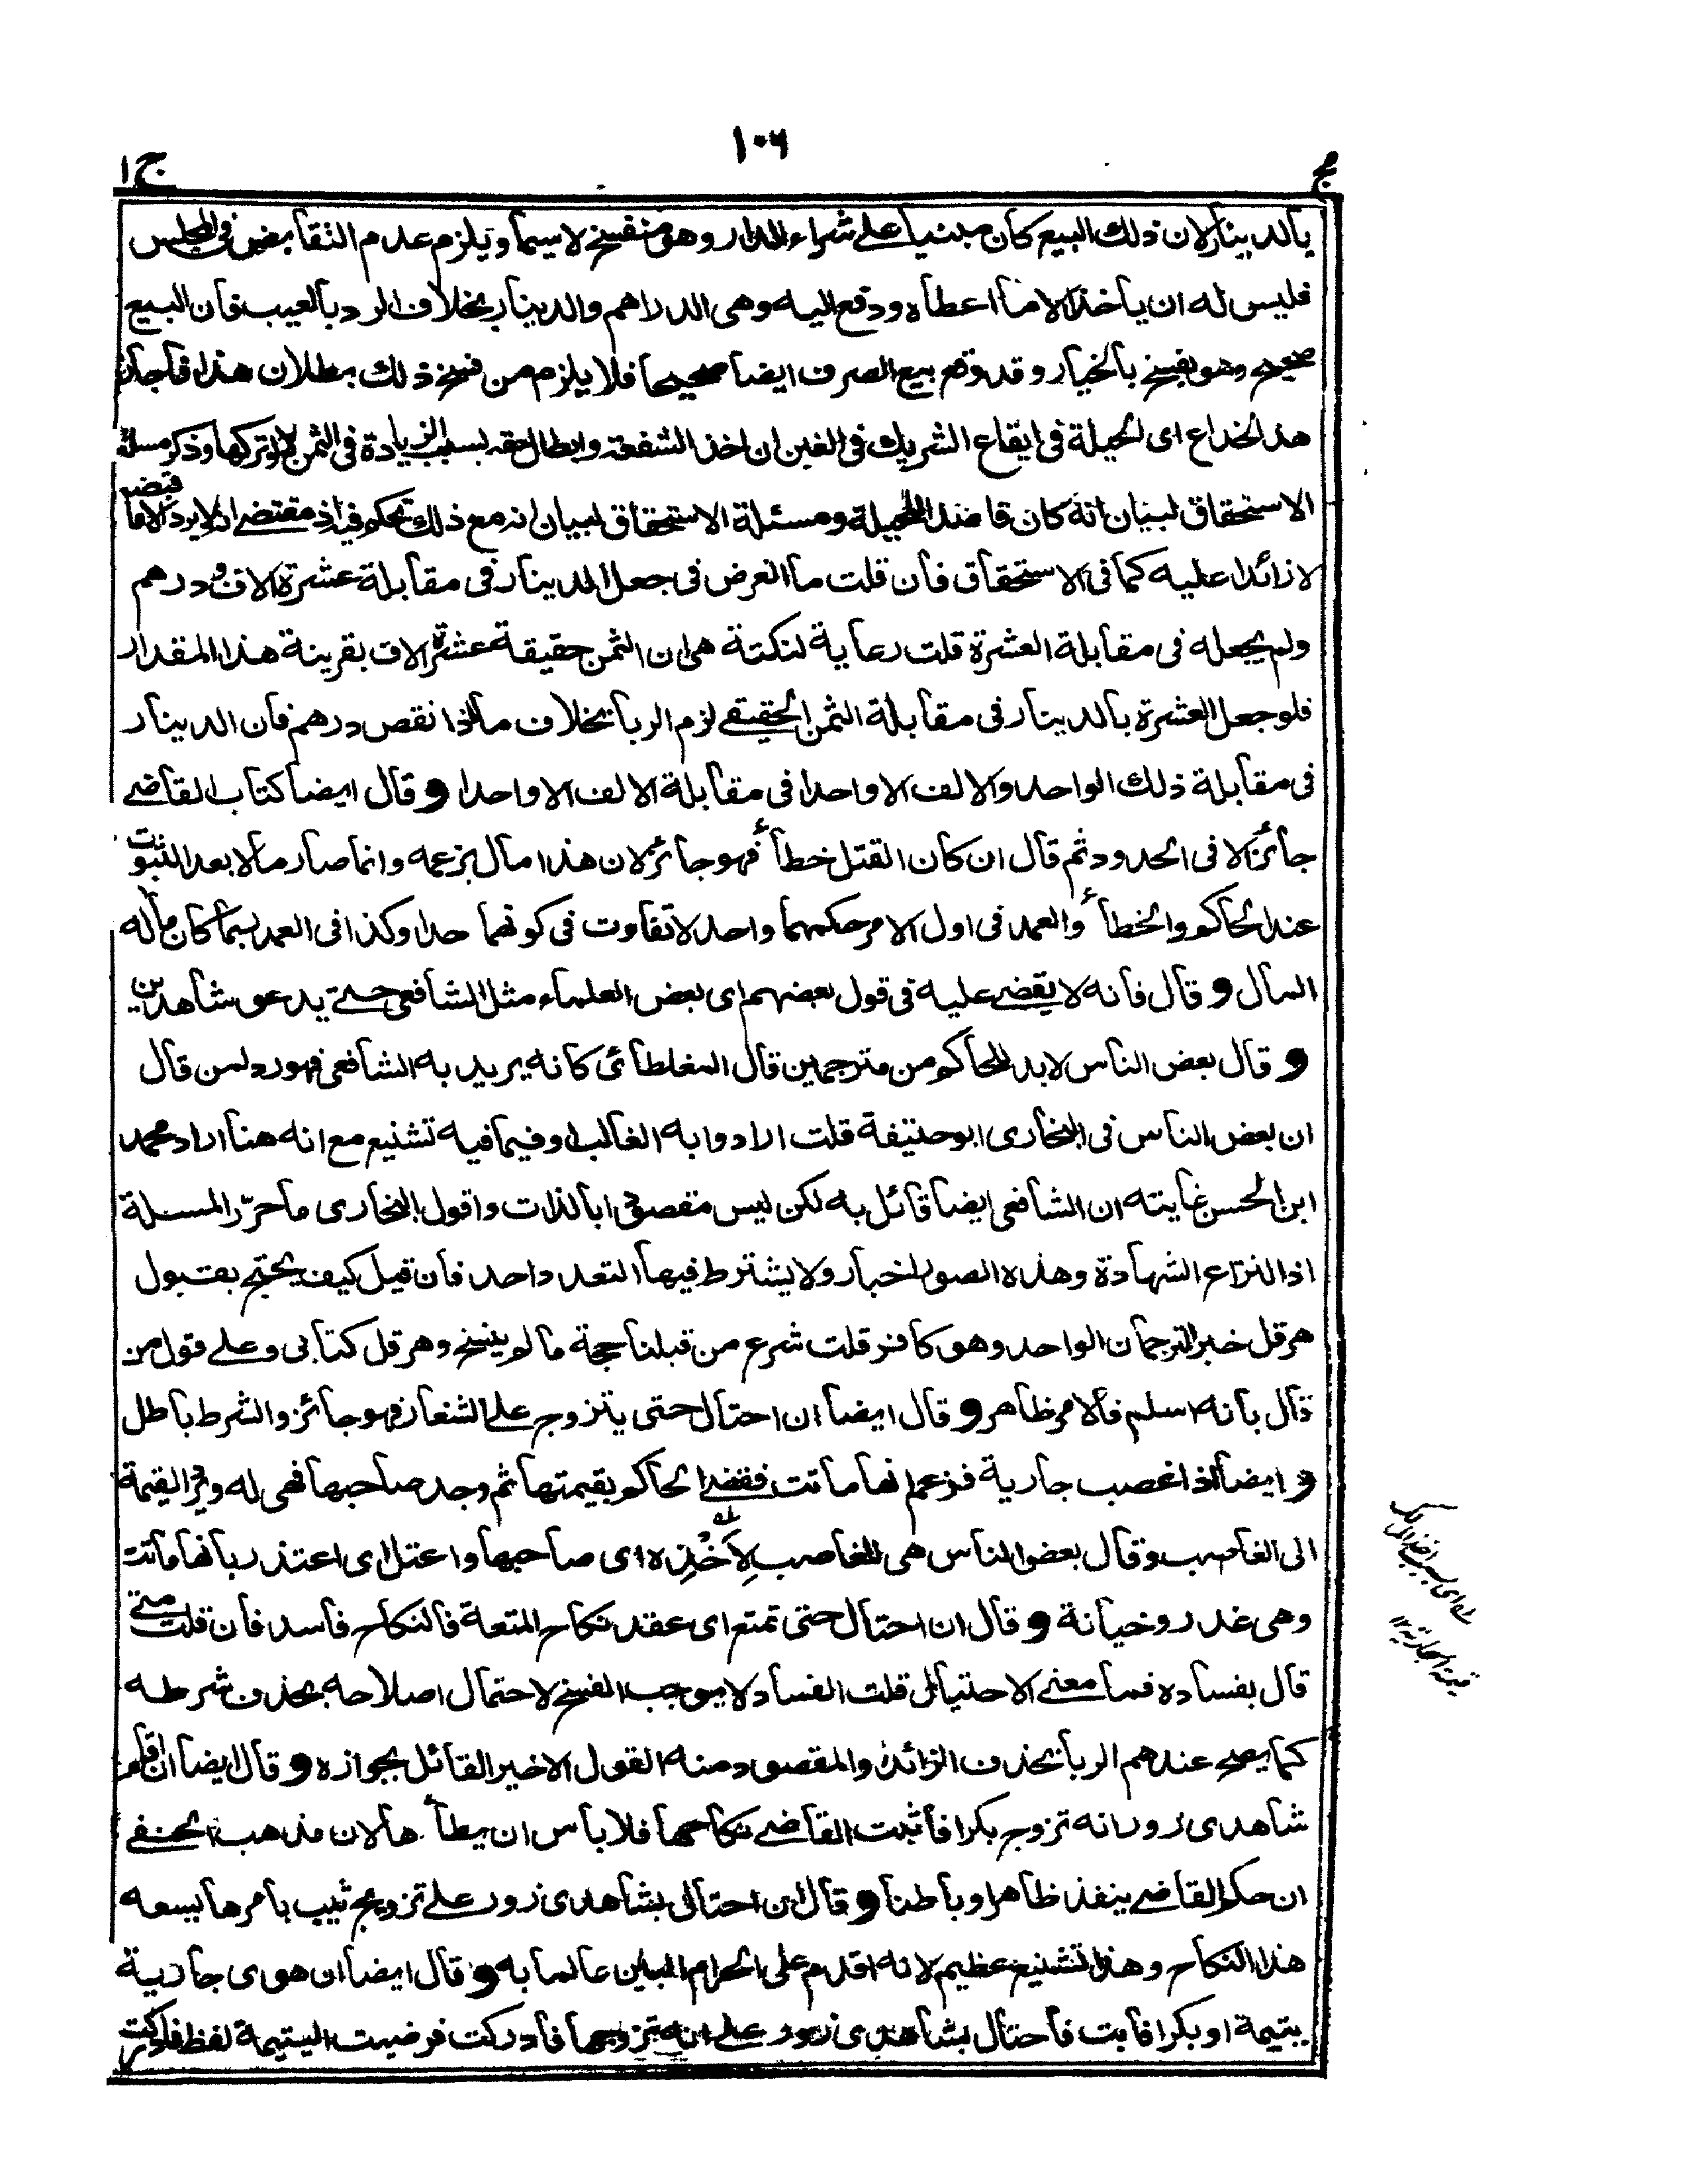 ١٠٦
مج
ج ١
بالدينار لان ذلك البيع كان مبنيا على شراء الدار وهو منفسخ لاسيما ويلزم عدم التقابض فى المجلس
فليس له ان ياخذ الا ما اعطاه ودفع اليه وهى الدراهم والدينار بخلاف الرد بالعيب فان البيع
صحيح وهو يفسخ بالخيار وقد وقع بيع الصرف ايضا صحيحا فلا يلزم من فسخ ذلك بطلان هذا فاجاز
هذا الخداع اى الحيلة فى ايقاع الشريك فى الغبن ان اخذ الشفعة وابطال حقه بسبب الزيادة فى الثمن لو تركها وذكر مسئلة
الاستحقاق لبيان انه كان قاصدا للحيلة ومسئلة الاستحقاق لبيان انه مع ذلك تحكم فيه اذ مقتضے انه لا يرد الا ما قبضه
لا زائدا عليه كما فى الاستحقاق فان قلت ما الغرض فى جعل الدينار فى مقابلة عشرة الاف و درهم
ولم يجعله فى مقابلة العشرة قلت رعاية لنكتة هى ان الثمن حقيقة عشرة الاف بقرينة هذا المقدار
فلو جعل العشرة بالدينار فى مقابلة الثمن الحقيقے لزم الربا بخلاف ما اذا نقص درهم فان الدينار
فى مقابلة ذلك الواحد والالف الا واحدا فى مقابلة الالف الا واحدا و قال ايضا كتاب القاضے
جائز الا فى الحدود ثم قال ان كان القتل خطأ فهو جائز لان هذا مال بزعمه وانما صار مالا بعد الثبوت
عند الحاكم والخطأ والعمد فى اول الامر حكمهما واحد لا تفاوت فى كونهما حدا وكذا فى العمد ربما كان ماله
المال و قال فانه لا يقضے عليه فى قول بعضهم اى بعض العلماء مثل الشافعى حتے يدعو شاهدين
و قال بعض الناس لابد للحاكم من مترجمين قال المغلطائى كانه يريد به الشافعى فهو رد لمن قال
ان بعض الناس فى البخارى ابو حنيفة قلت ارادوا به الغالب او فيما فيه تشنيع مع انه هنا اراد محمد
ابن الحسن غايته ان الشافعى ايضا قائل به لكن ليس مقصودا بالذات واقول البخارى ما حرّر المسئلة
اذ النزاع الشهادة وهذه الصور اخبار ولا يشترط فيها التعدد احد فان قيل كيف يحتج بقبول
هرقل خبر الترجمان الواحد وهو كافر قلت شرع من قبلنا حجة ما لم ينسخ وهرقل كتابى وعلے قول من
قال بانه اسلم فالامر ظاهر و قال ايضا ان احتال حتى يتزوج علے الشغار فهو جائز والشرط باطل
و ايضا اذا غصب جارية فزعم انها ماتت فقضے الحاكم بقيمتها ثم وجد صاحبها فهى له وترد القيمة
الى الغاصب وقال بعض الناس هى للغاصب لِاَخْذِه اى صاحبها واعتل اى اعتذر بانها ماتت
وهى غدر وخيانة و قال ان احتال حتى تمتع اى عقد نكاح المتعة فالنكاح فاسد فان قلت متے
قال بفساده فما معنے الاحتيال قلت الفساد لا يوجب الفسخ لاحتمال اصلاحه بحذف شرطه
كما يصح عندهم الربا بحذف الزائد والمقصود منه القول الاخير القائل بجوازه و قال ايضا ان اقام
شاهدى زور انه تزوج بكرا فاثبت القاضے نكاحها فلا باس ان يطأها لان مذهب الحنفے
ان حكم القاضے ينفذ ظاهرا وباطنا و قال ان احتال بشاهدى زور علے تزويج ثيب بامرها يسعه
هذا النكاح وهذا تشنيع عظيم لانه اقدم على الحرام البين عالما به و قال ايضا ان هوى جارية
يتيمة او بكرا فابت فاحتال بشاهدى زور علے انه تزوجها فادركت فرضيت اليتيمة لفظ فادركت
له اى بسبب اخذ المالك
قيمة الجارية ١٢